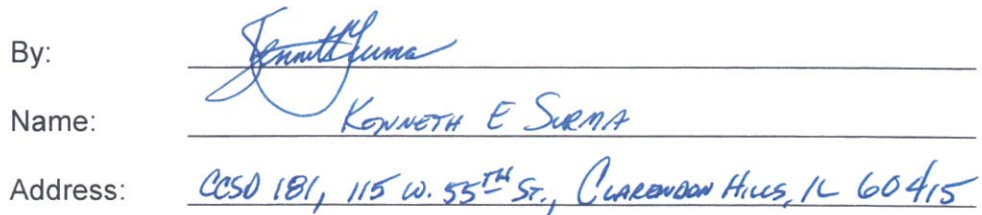 By: Kenneth Surma
Name: KENNETH E SURMA
Address: CCSD 181, 115 W. 55TH ST., CLARENDON HILLS, IL 60415